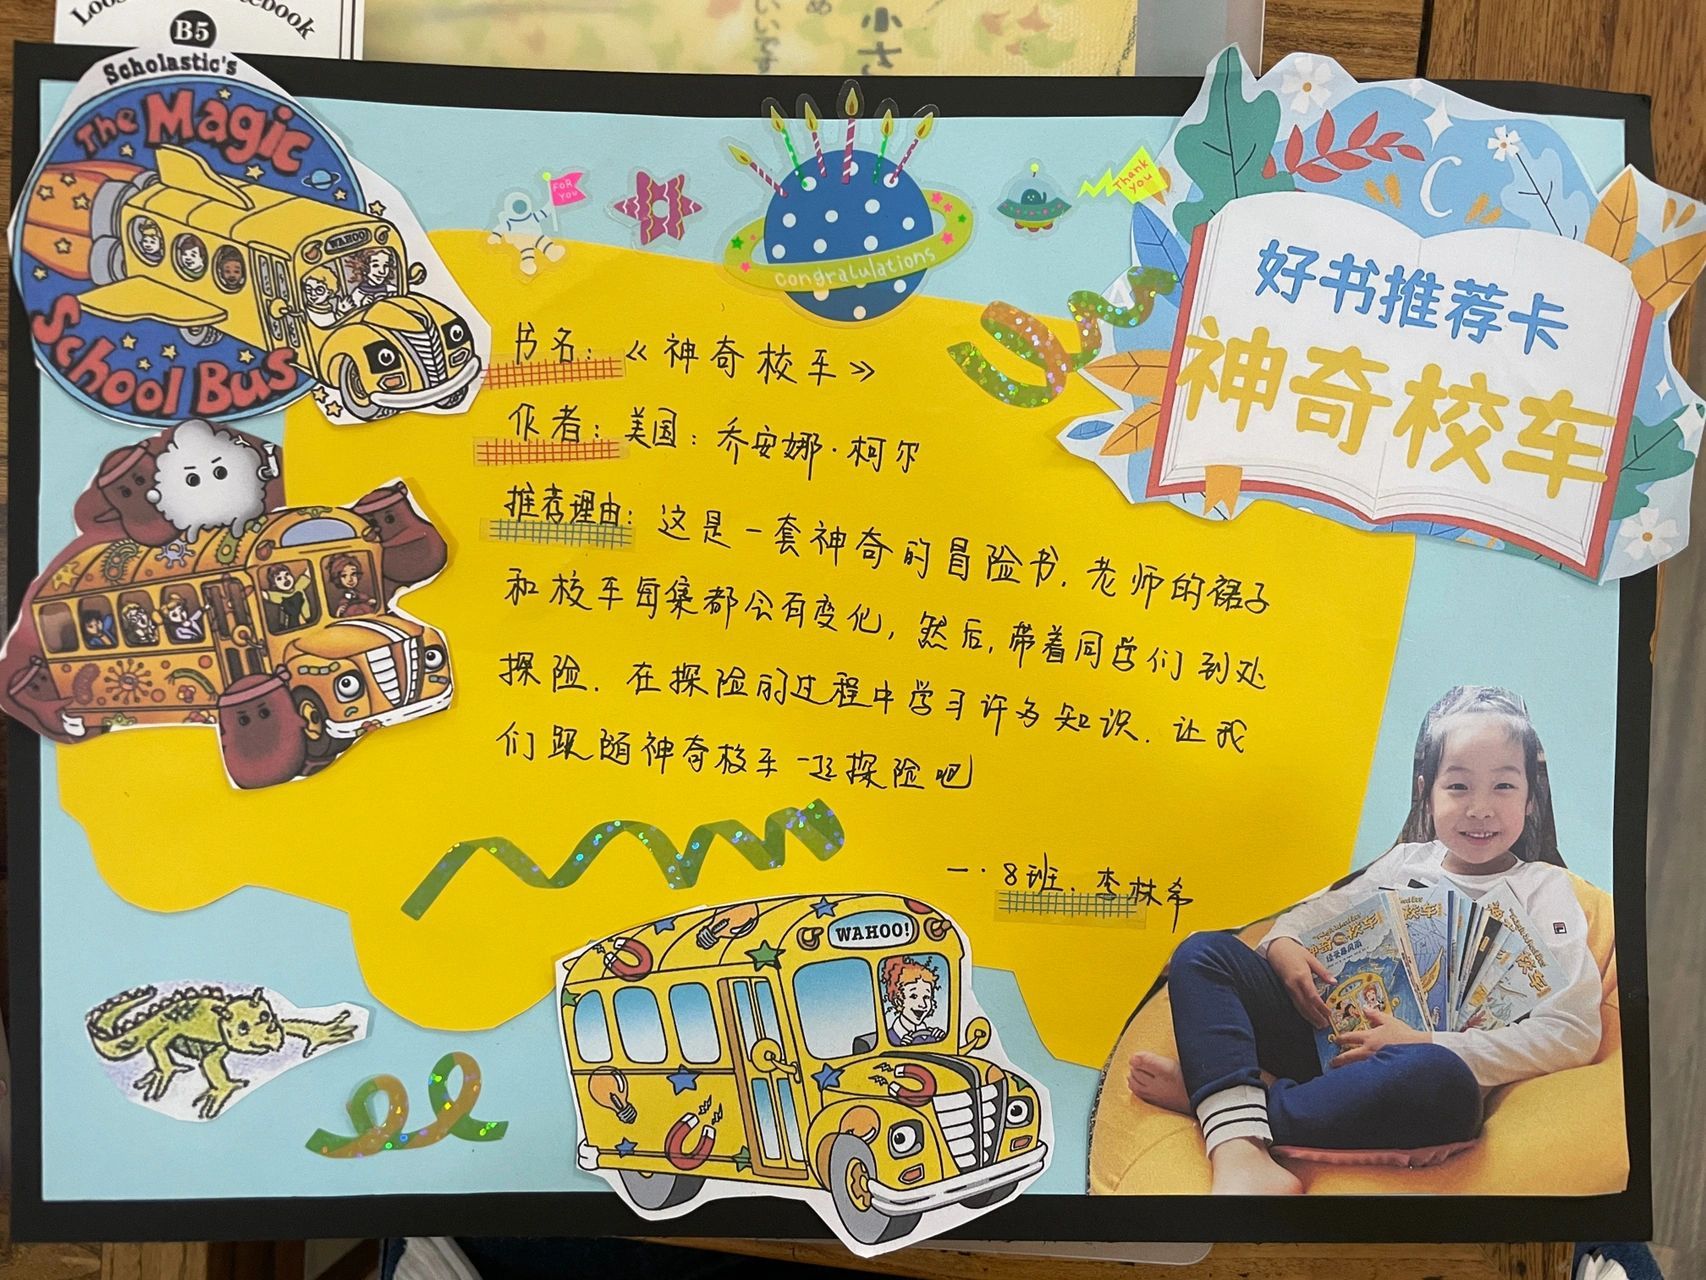 Notebook
B5
Scholastic's
The Magic
School Bus
WAHOO!
FOR YOU
Congratulations
Thank you
好书推荐卡
神奇校车
书名：《神奇校车》
作者：美国：乔安娜·柯尔
推荐理由：这是一套神奇的冒险书.老师的裙子
和校车每集都会有变化,然后,带着同学们到处
探险.在探险的过程中学习许多知识.让我
们跟随神奇校车一起探险吧
一.8班.李林希
WAHOO!